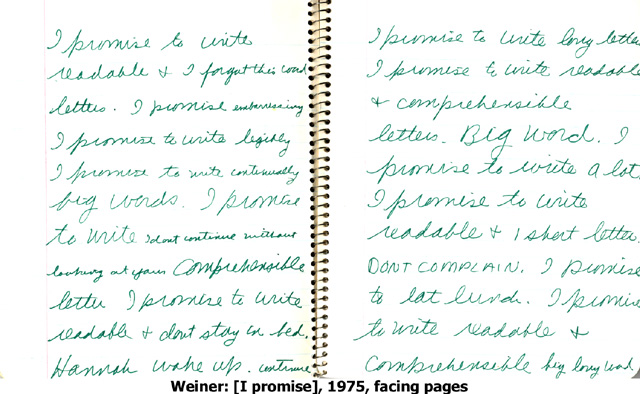 I promise to write
readable & I forgot this word
letters. I promise embarrassing
I promise to write legibly
I promise to write continually
big words. I promise
to write I dont continue without
looking at your Comprehensible
letter I promise to write
readable & dont stay in bed.
Hannah wake up. continue
I promise to write long letters
I promise to write readable
& comprehensible
letters. BIG WORD. I
promise to write a lot
I promise to write
readable & 1 short letter.
DONT COMPLAIN. I promise
to eat lunch. I promise
to write readable &
Comprehensible big long word
Weiner: [I promise], 1975, facing pages